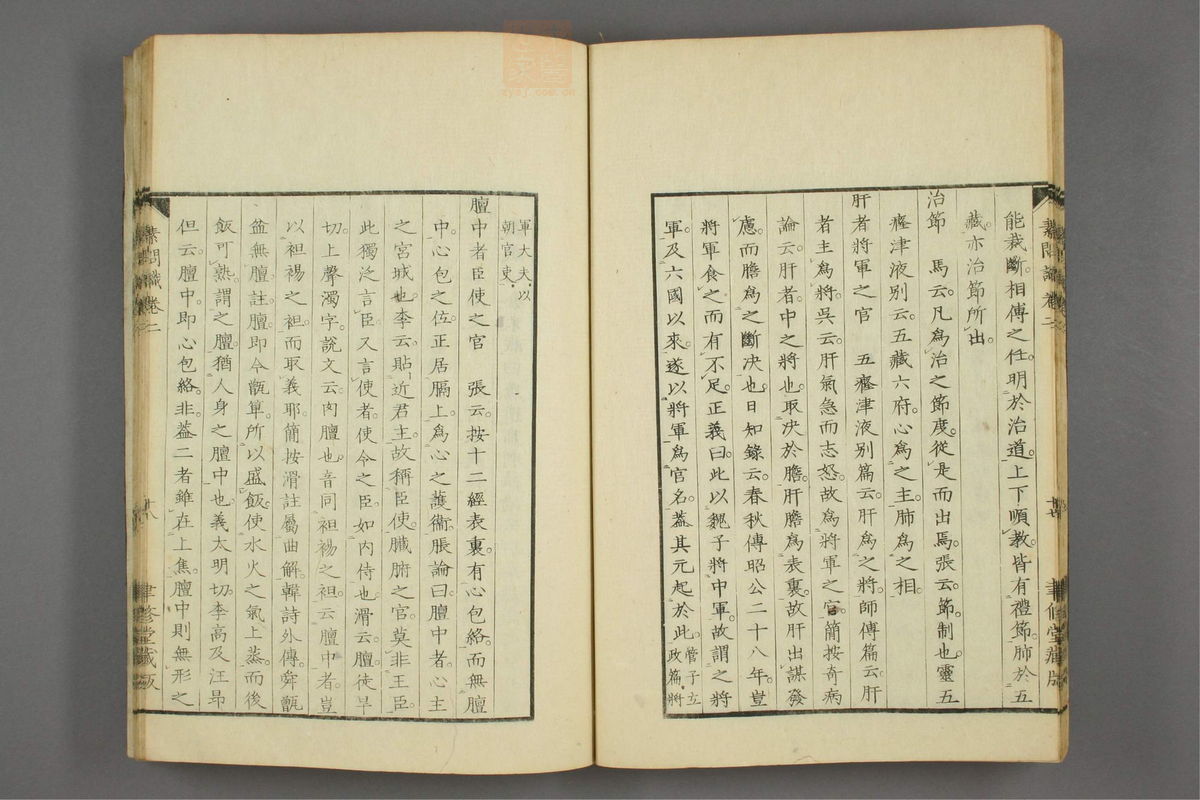 能裁斷。相傅之任。明於治道。上下順教。皆有禮節。肺於五
藏。亦治節所出。
治節　馬云。凡爲治之節度。從是而出焉。張云。節。制也。靈五
癃津液別云。五藏六府。心爲之主。肺爲之相。
肝者將軍之官　五癃津液別篇云。肝爲之將。師傳篇云。肝
者主爲將。吳云。肝氣急而志怒。故爲將軍之官。簡按奇病
論云。肝者。中之將也。取決於膽。肝膽爲表裏。故肝出謀發
慮。而膽爲之斷决也。日知錄云。春秋傳昭公二十八年。豈
將軍食之而有不足。正義曰。此以魏子將中軍。故謂之將
軍。及六國以來。遂以將軍爲官名。蓋其元起於此。管子立政篇。將
軍大夫。以朝官吏。
膻中者臣使之官　張云。按十二經表裏。有心包絡。而無膻
中。心包之位。正居膈上。爲心之護衞。脹論曰。膻中者。心主
之宮城也。李云。貼近君主。故稱臣使。臟腑之官。莫非王臣。
此獨泛言臣。又言使者。使令之臣。如內侍也。滑云。膻。徒旱
切。上聲濁字。說文云。肉膻也。音同袒裼之袒。云膻中者。豈
以袒裼之袒。而取義耶。簡按滑註屬曲解。韓詩外傳。舜甑
盆無膻。註。膻。即今甑箄。所以盛飯。使水火之氣上蒸。而後
飯可熟。謂之膻。猶人身之膻中也。義太明切。李高及汪昂
但云。膻中。即心包絡。非。蓋二者雖在上焦。膻中則無形之
素問識卷二
十八
聿修堂藏版